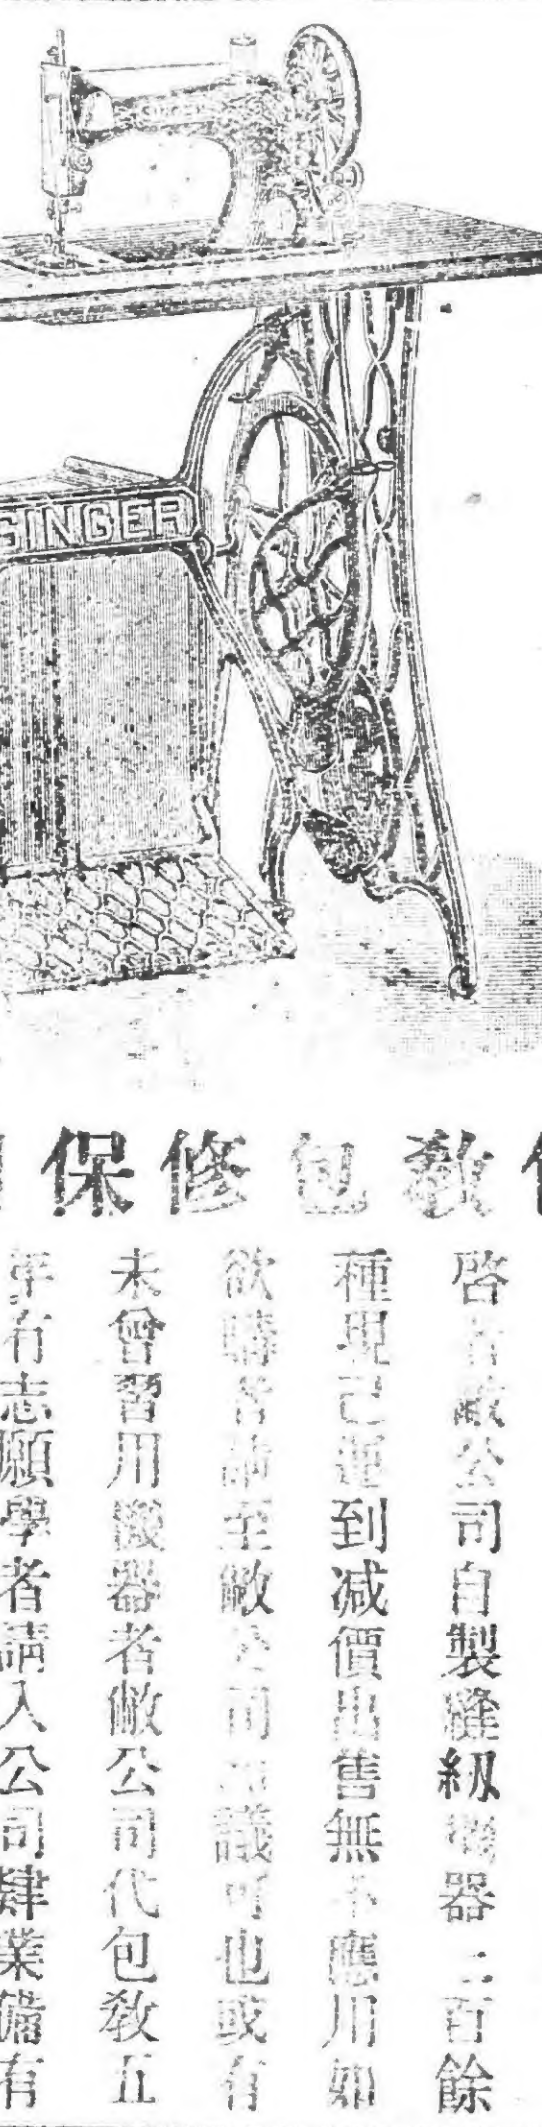 SINGER
教包修保
啓者敝公司自製縫紉機器二百餘
種現已運到減價出售無不應用如
欲購者請至敝公司面議可也或有
未曾習用機器者敝公司代包教五
年有志願學者請入公司肄業備有